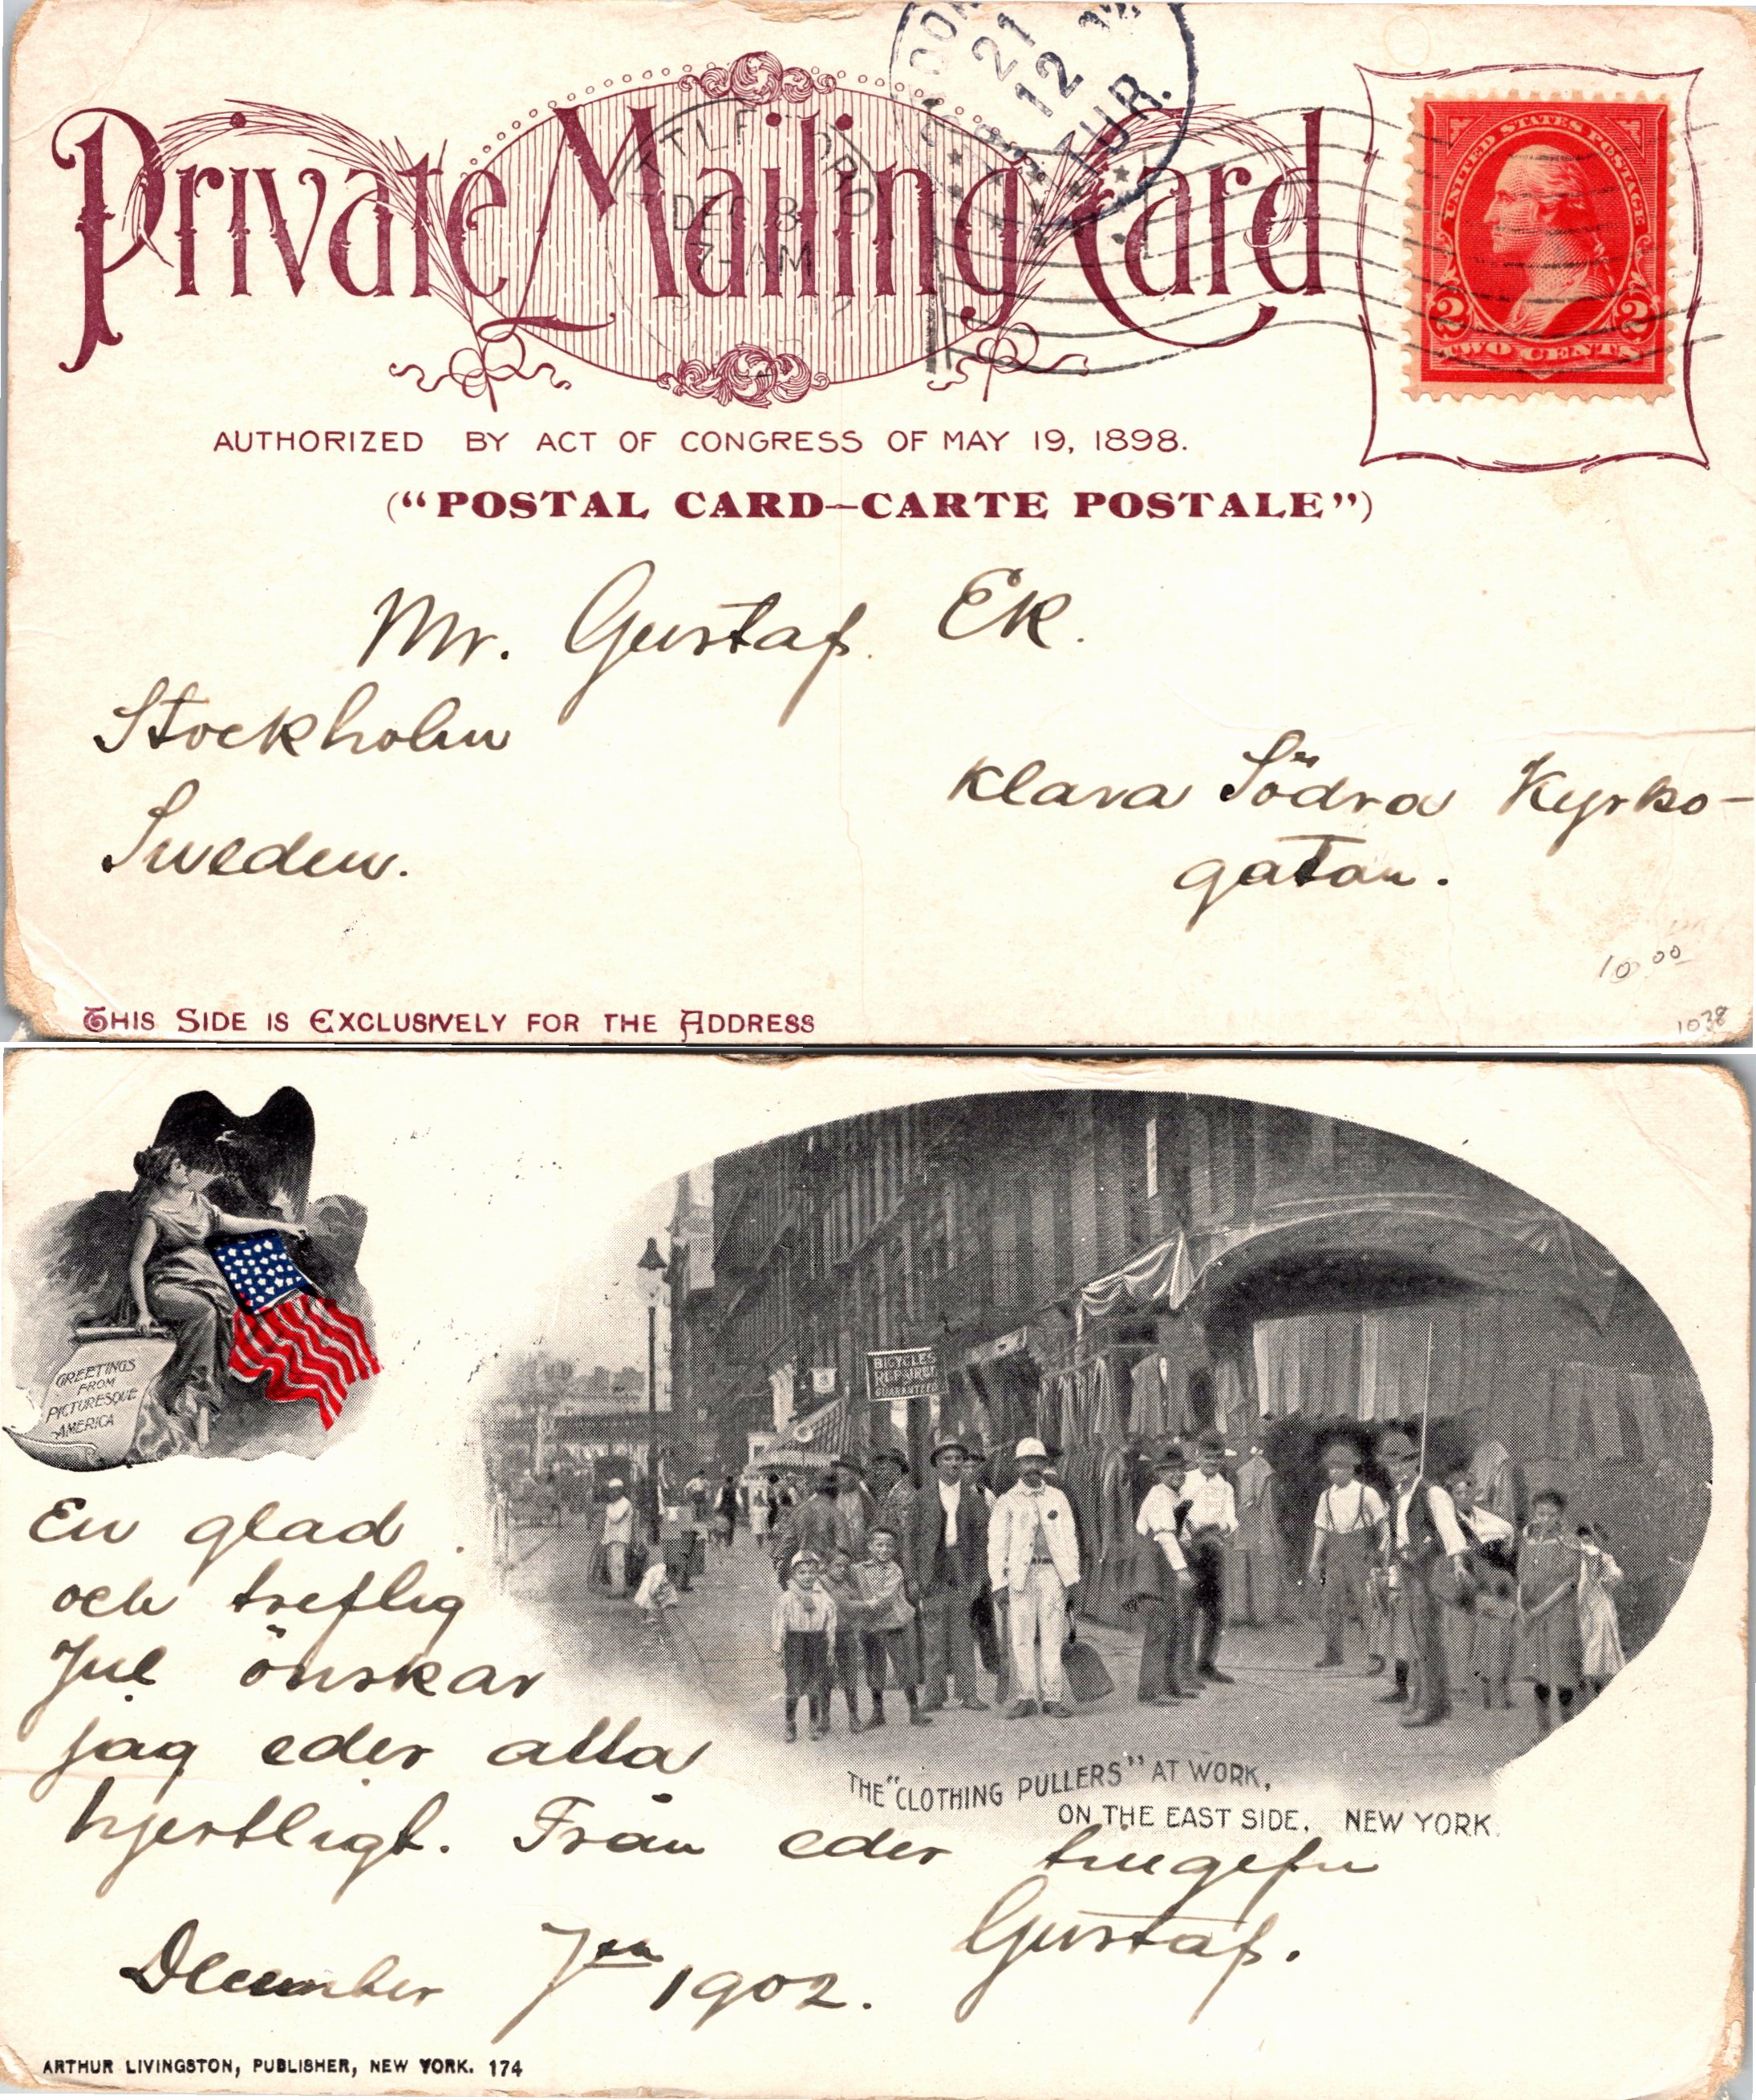 Private Mailing Card
DEC 8
7-AM
21
12
TUR.
UNITED STATES POSTAGE
2 2
TWO CENTS
AUTHORIZED BY ACT OF CONGRESS OF MAY 19, 1898.
("POSTAL CARD—CARTE POSTALE")
Mr. Gustaf Ek.
Stockholm
Sweden.
Klara Södra Kyrko-
gatan.
10.00
1038
THIS SIDE IS EXCLUSIVELY FOR THE ADDRESS
GREETINGS
FROM
PICTURESQUE
AMERICA
BICYCLES
REPAIRED
GUARANTEED
En glad
och treflig
Jul önskar
jag eder alla
hjertligt. Från eder
Gustaf.
December 7en 1902.
THE "CLOTHING PULLERS" AT WORK,
ON THE EAST SIDE, NEW YORK.
ARTHUR LIVINGSTON, PUBLISHER, NEW YORK. 174